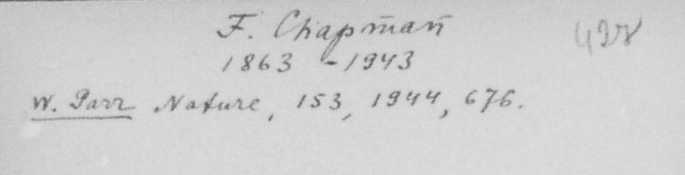 F. Chapman
428
1863 - 1943
W. Parr Nature, 153, 1944, 676.